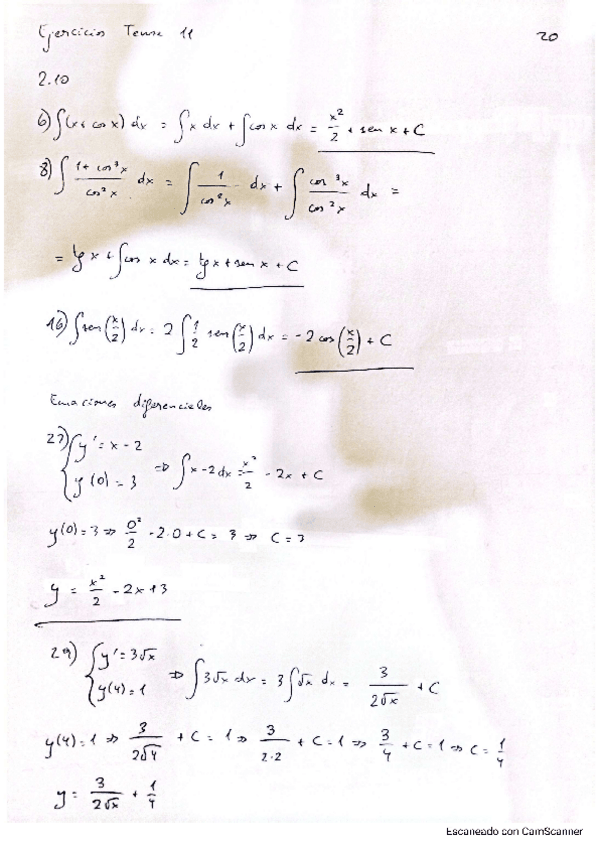 Ejercicios Tema 11 20
2.10
6) ∫(x+cos x) dx = ∫x dx + ∫cos x dx = x²/2 + sen x + C
8) ∫ (1+cos³x)/(cos²x) dx = ∫ 1/(cos²x) dx + ∫ (cos³x)/(cos²x) dx =
= tg x + ∫cos x dx = tg x + sen x + C
16) ∫sen(x/2) dx = 2 ∫ 1/2 sen(x/2) dx = -2 cos(x/2) + C
Ecuaciones diferenciales
27) { y' = x - 2
y(0) = 3 ⇒ ∫x-2 dx = x²/2 - 2x + C
y(0)=3 ⇒ 0²/2 - 2·0 + C = 3 ⇒ C = 3
y = x²/2 - 2x + 3
29) { y' = 3√x
y(4) = 1 ⇒ ∫3√x dx = 3∫√x dx = 3/(2√x) + C
y(4)=1 ⇒ 3/(2√4) + C = 1 ⇒ 3/(2·2) + C = 1 ⇒ 3/4 + C = 1 ⇒ C = 1/4
y = 3/(2√x) + 1/4
Escaneado con CamScanner